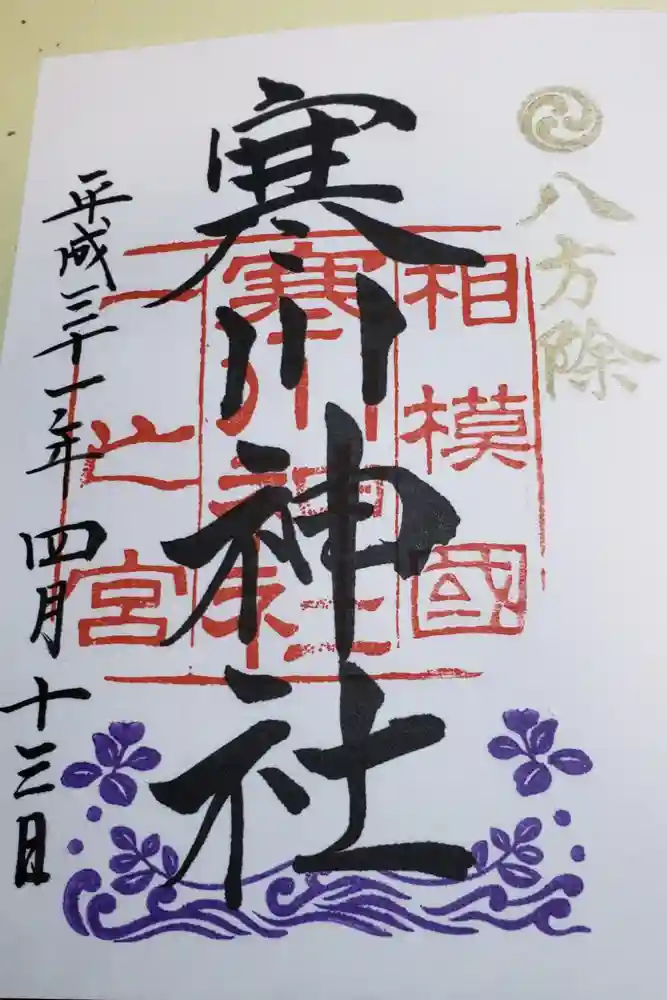 八方除
寒川神社
相模國
寒川神社
一之宮
平成三十一年四月十三日